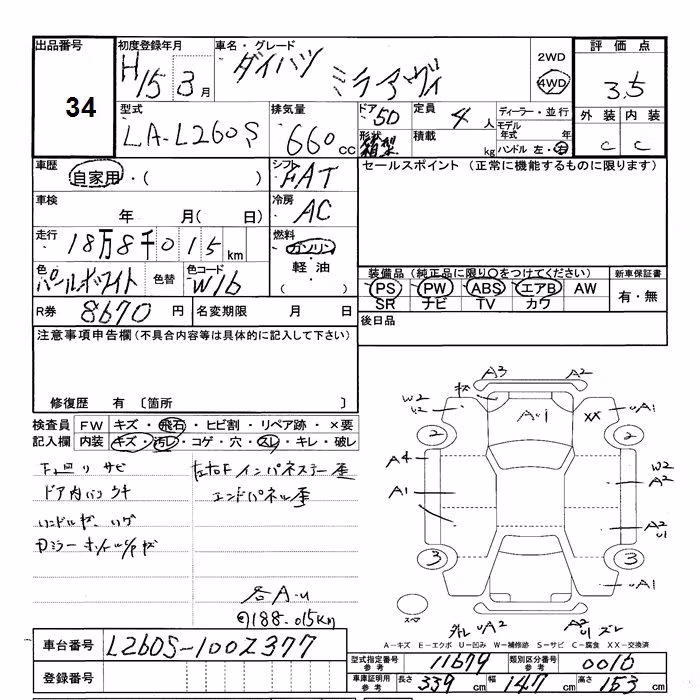 出品番号 初度登録年月 車名・グレード 評価点
34 H15年3月 ダイハツ ミラアヴィ 2WD 4WD 3.5
型式 排気量 ドア 5D 定員 4人 ディーラー・並行 外装 内装
LA-L260S 660cc 形状 箱型 積載 kg モデル年式 年 ハンドル 左・右 C C
車歴 自家用・( ) シフト FAT セールスポイント (正常に機能するものに限ります)
車検 年 月( 日) 冷房 AC
走行 18万8千015km 燃料 ガソリン・軽油・( )
色 パールホワイト 色替 色コード W16
装備品(純正品に限り○をつけてください) 新車保証書
PS PW ABS エアB AW 有・無
SR ナビ TV カワ
R券 8670円 名変期限 月 日 後日品
注意事項申告欄(不具合内容等は具体的に記入して下さい)
修復歴 有 〔箇所 〕
検査員 FW キズ・飛石・ヒビ割・リペア跡・×要
記入欄 内装 キズ・汚レ・コゲ・穴・スレ・キレ・破レ
下回りサビ 左右Fインパネステー歪
ドア内バンウキ エンドパネル歪
ハンドルキズ、ハゲ
各A-U
188.015km
A3 A2
W2 キズ A-1 XX A1
2 2
A4 W2
A2
A1 A2
U1
3 3
A1
スペア
UA2 A2 U1 ズレ
A-キズ E-エクボ U-凹み W-補修跡 S-サビ C-腐食 XX-交換済
車台番号 L260S-1002377
登録番号
型式指定番号 参考 11679 類別区分番号 参考 0016
車庫証明用 参考 長さ 339cm 幅 147cm 高さ 153cm